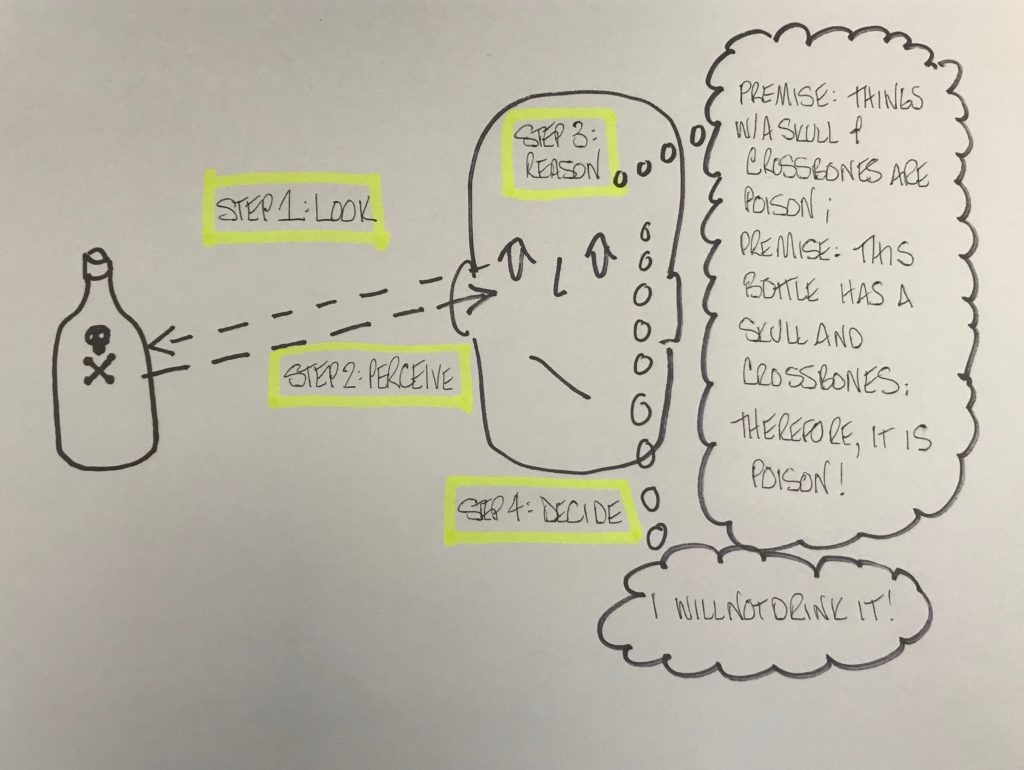 STEP 1: LOOK
STEP 2: PERCEIVE
STEP 3:
REASON
PREMISE: THINGS
W/A SKULL &
CROSSBONES ARE
POISON;
PREMISE: THIS
BOTTLE HAS A
SKULL AND
CROSSBONES;
THEREFORE, IT IS
POISON!
STEP 4: DECIDE
I WILL NOT DRINK IT!